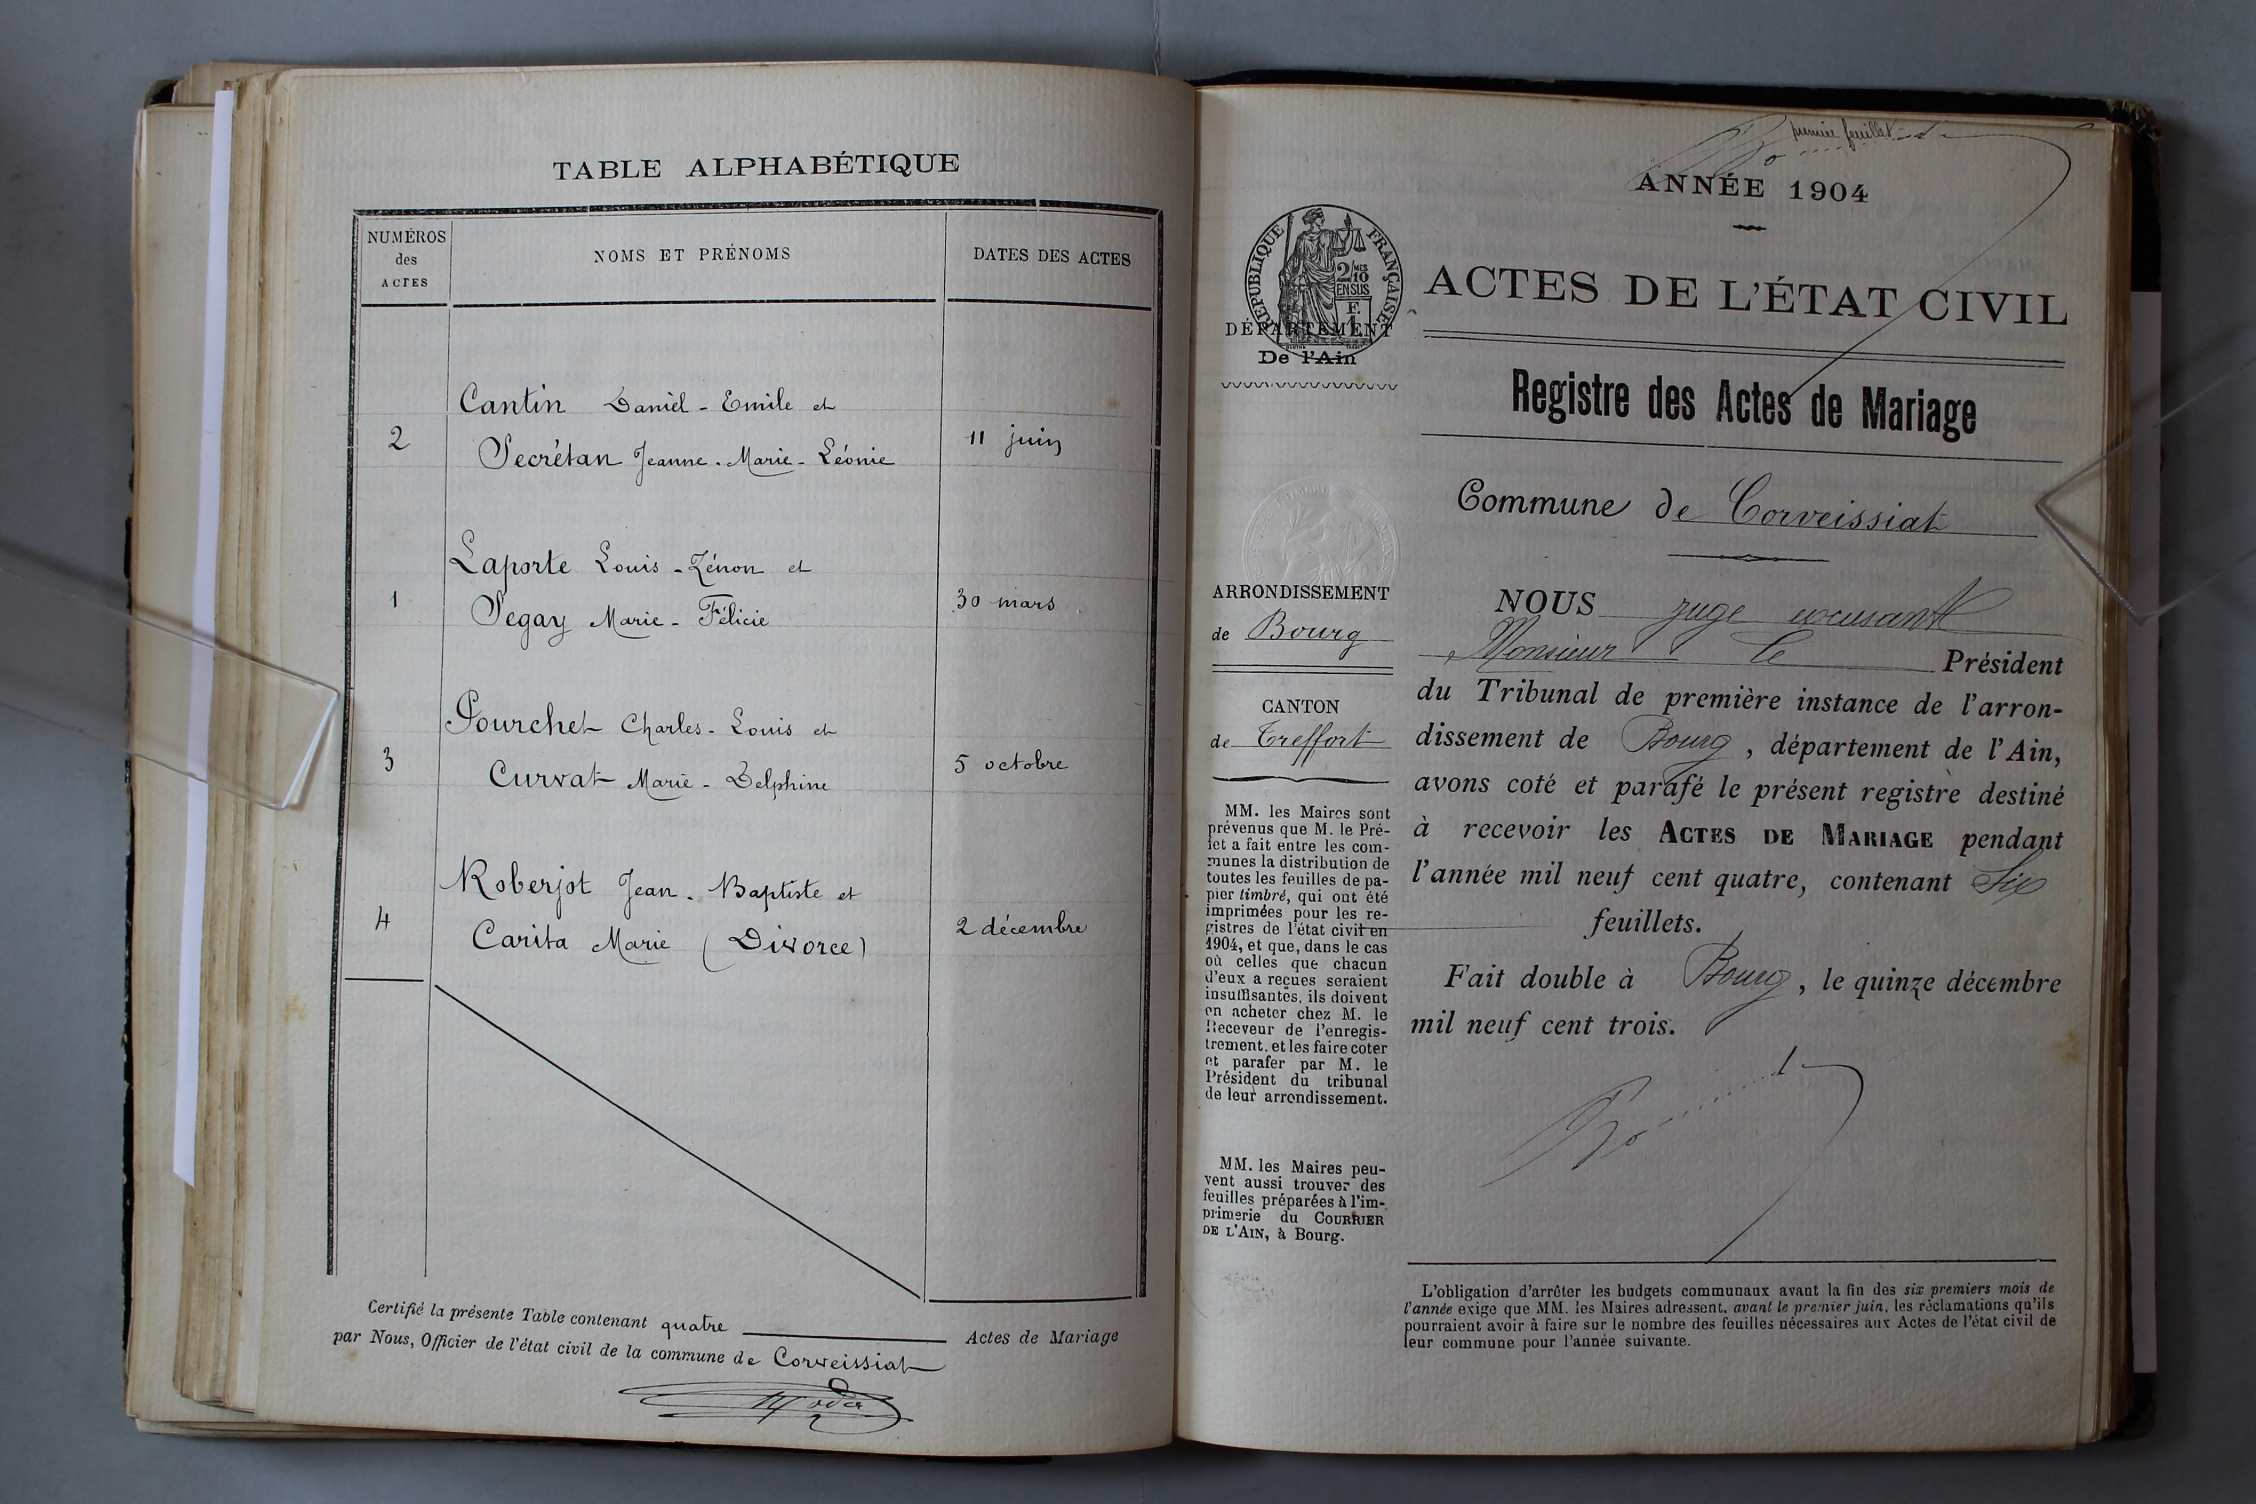 TABLE ALPHABÉTIQUE
NUMÉROS
des
ACTES
NOMS ET PRÉNOMS
DATES DES ACTES
Cantin Daniel - Emile et
2
Secrétan Jeanne - Marie - Léonie
11 juin
Laporte Louis - Zénon et
1
Segay Marie - Félicie
30 mars
Pourchet Charles - Louis et
3
Curvat Marie - Delphine
5 octobre
Roberjot Jean - Baptiste et
4
Carita Marie (Divorce)
2 décembre
Certifié la présente Table contenant quatre Actes de Mariage
par Nous, Officier de l'état civil de la commune de Corveissiat
premier feuillet
ANNÉE 1904
RÉPUBLIQUE FRANÇAISE
2/10 MES
EN SUS
DÉPARTEMENT
De l'Ain
ACTES DE L'ÉTAT CIVIL
Registre des Actes de Mariage
Commune de Corveissiat
ARRONDISSEMENT
de Bourg
CANTON
de Treffort
MM. les Maires sont
prévenus que M. le Pré-
fet a fait entre les com-
munes la distribution de
toutes les feuilles de pa-
pier timbré, qui ont été
imprimées pour les re-
gistres de l'état civil en
1904, et que, dans le cas
où celles que chacun
d'eux a reçues seraient
insuffisantes, ils doivent
en acheter chez M. le
Receveur de l'enregis-
trement, et les faire coter
et parafer par M. le
Président du tribunal
de leur arrondissement.
MM. les Maires peu-
vent aussi trouver des
feuilles préparées à l'im-
primerie du COURRIER
DE L'AIN, à Bourg.
NOUS juge excusant
Monsieur le Président
du Tribunal de première instance de l'arron-
dissement de Bourg, département de l'Ain,
avons coté et parafé le présent registre destiné
à recevoir les ACTES DE MARIAGE pendant
l'année mil neuf cent quatre, contenant Six
feuillets.
Fait double à Bourg, le quinze décembre
mil neuf cent trois.
L'obligation d'arrêter les budgets communaux avant la fin des six premiers mois de
l'année exige que MM. les Maires adressent, avant le premier juin, les réclamations qu'ils
pourraient avoir à faire sur le nombre des feuilles nécessaires aux Actes de l'état civil de
leur commune pour l'année suivante.